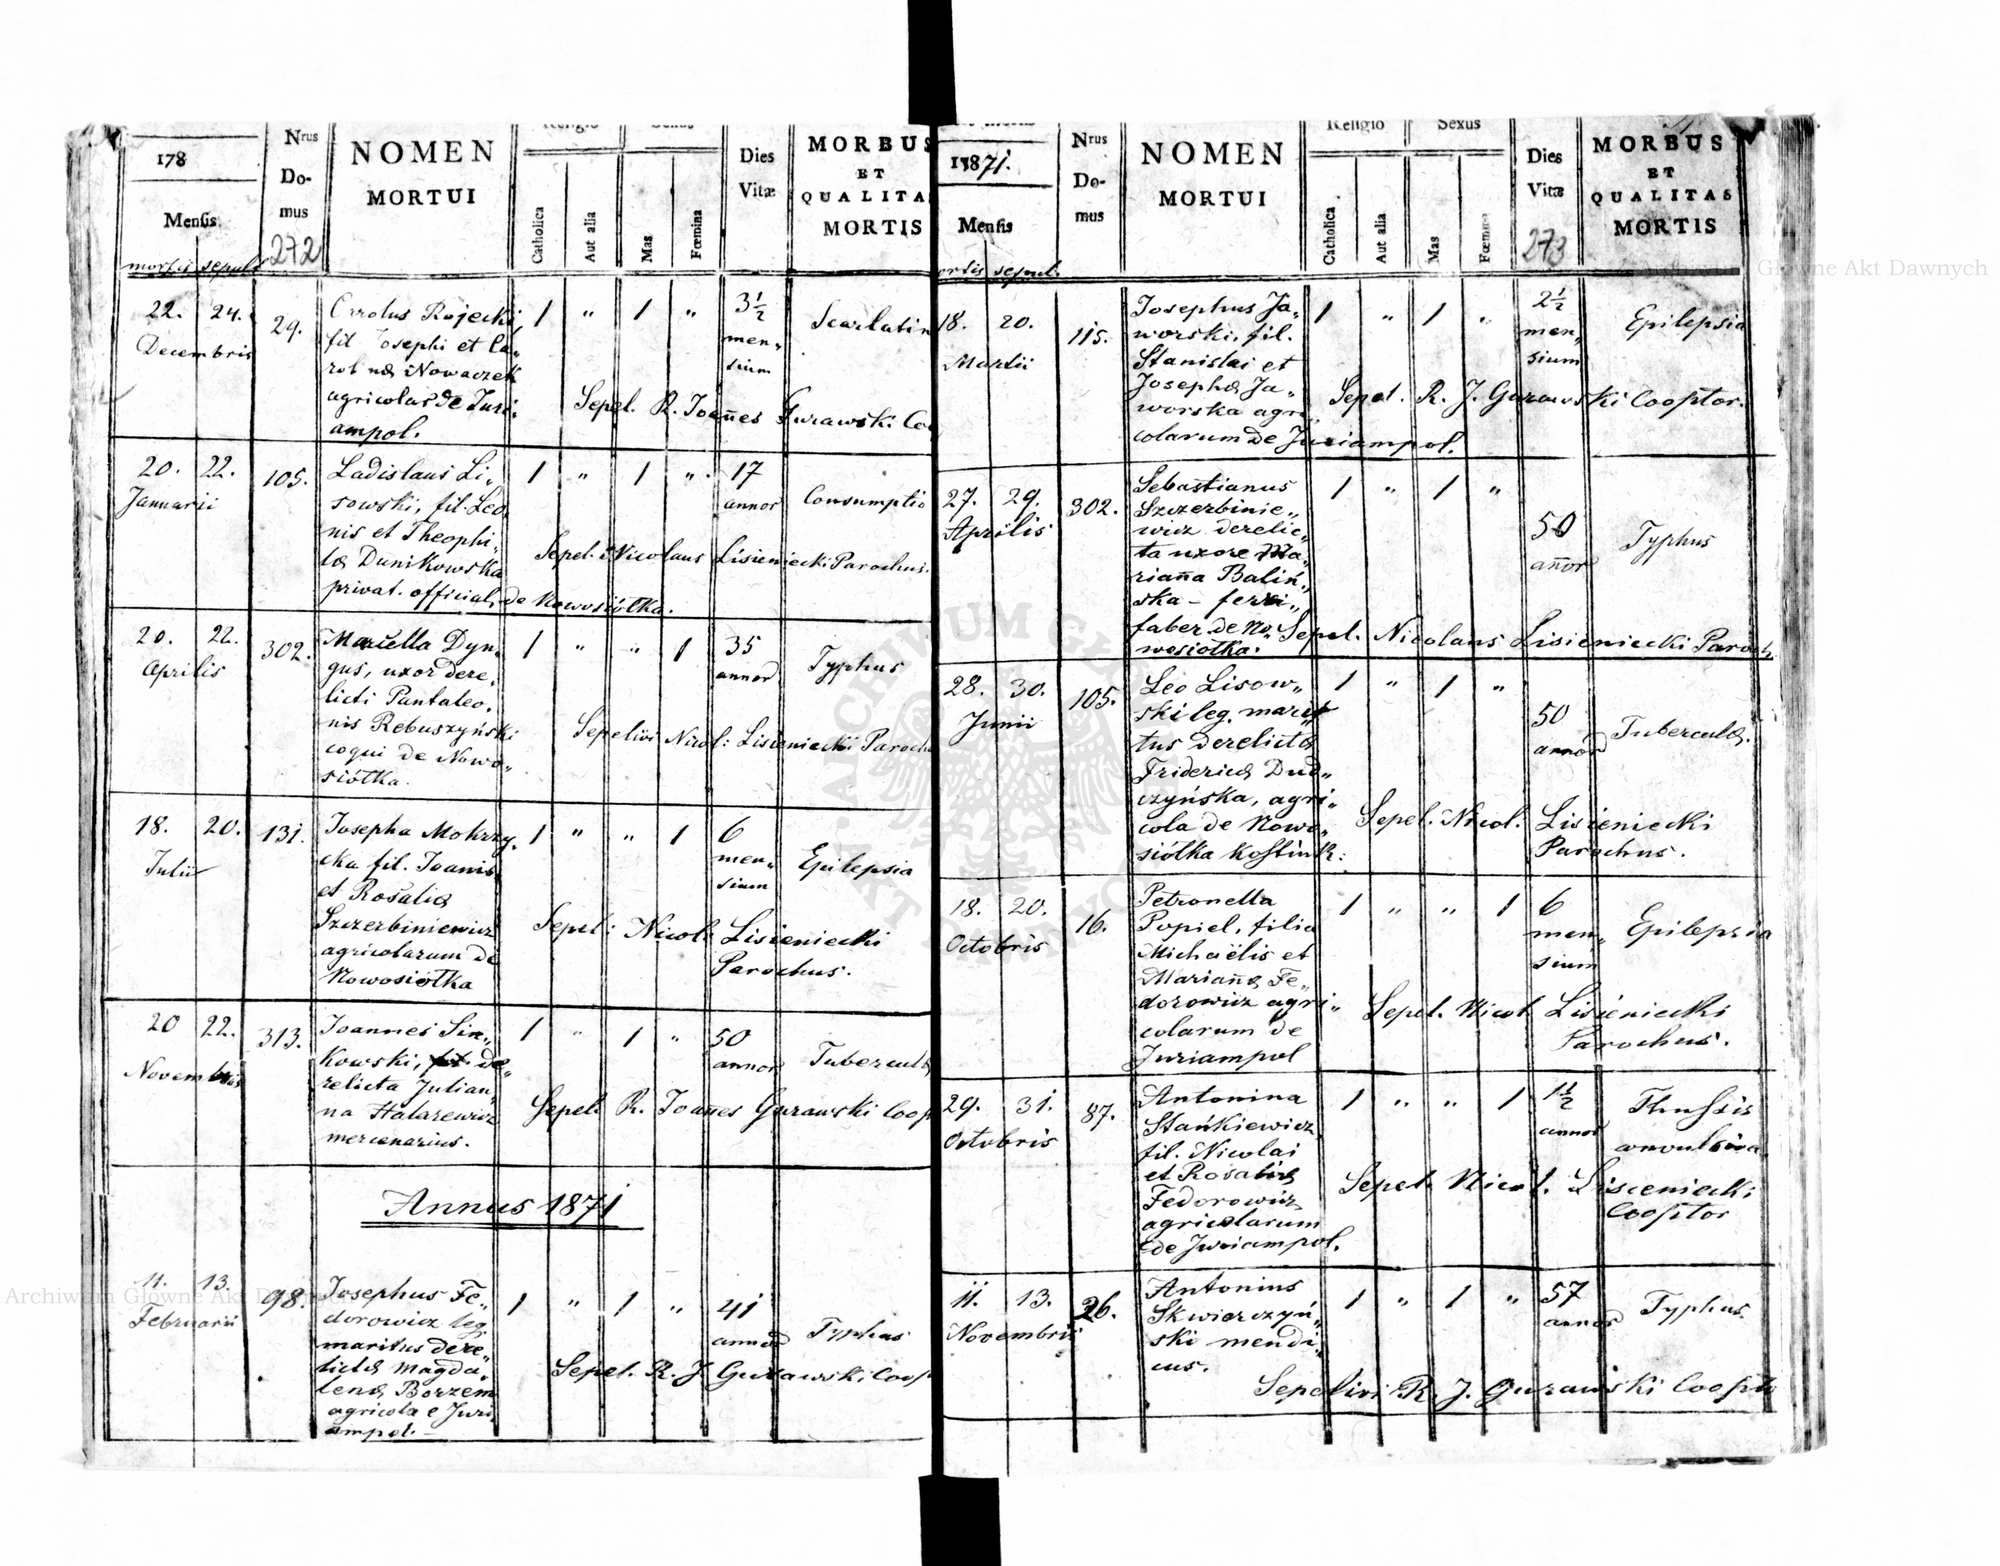 178
Mensis
mortis sepult
Nrus
Do-
mus
272
NOMEN
MORTUI
Religio
Catholica
Aut alia
Sexus
Mas
Fœmina
Dies
Vitæ
MORBUS
ET
QUALITA
MORTIS
22. 24.
Decembris
29.
Carolus Rojecki,
fil Josephi et Ca„
rol næ Nowaczek
agricolar de Juri„
ampol.
1 „ 1 „
3½
men„
sium
Scarlatin
Sepel. R. Joañes Gurawski Coo
20. 22.
Januarii
105.
Ladislaus Li„
sowski, fil. Leo
nis et Theophi„
læ Dunikowska
privat. official. de Nowosiółka.
1 „ 1 „
17
annor
Consumptio
Sepel. Nicolaus Lisieniecki Parochus.
20. 22.
Aprilis
302.
Marcella Dyn„
gus, uxor dere„
licti Pantaleo„
nis Rebuszyński
coqui de Nowo„
siółka.
1 „ „ 1
35
annor
Typhus
Sepelivi Nicol: Lisieniecki Paroch
18. 20.
Julii
131.
Josepha Mokrzy„
cka fil. Joanis
et Rosaliæ
Szczerbiniewicz
agricolarum de
Nowosiółka
1 „ „ 1
6
men„
sium
Epilepsia
Sepel: Nicol: Lisieniecki
Parochus.
20 22.
Novembris
313.
Joannes Sin„
kowski, de„
relicta Julian„
na Halarewicz
mercenarius.
1 „ 1 „
50
annor
Tuberculæ
Sepel. R. Joañes Gurawski Coop
Annus 1871
11. 13.
Februarii
98.
Josephus Fe„
dorowicz leg
maritus dere„
lictæ Magda„
lenæ Borzem
agricola e Juri
ampol.
1 „ 1 „
41
annor
Typhus
Sepel. R. J. Gurawski Coop
1871.
Mensis
ortis sepul.
Nrus
Do-
mus
NOMEN
MORTUI
Religio
Catholica
Aut alia
Sexus
Mas
Fœmina
Dies
Vitæ
273
MORBUS
ET
QUALITAS
MORTIS
18. 20.
Martii
115.
Josephus Ja„
worski, fil.
Stanislai et
Josephæ Ja„
worska agri
colarum de Juriampol.
1 „ 1 „
2½
men„
sium
Epilepsia
Sepel. R. J. Gurawski Cooptor.
27. 29.
Aprilis
302.
Sebastianus
Szczerbinie„
wicz derelic„
ta uxore Ma„
riaña Baliń„
ska - ferri„
faber de No„
wosiółka.
1 „ 1 „
50
añor
Typhus
Sepel. Nicolaus Lisieniecki Paroch
28. 30.
Junii
105.
Leo Lisow„
ski leg. mari
tus derelictæ
Fridericæ Dud„
czyńska, agri„
cola de Nowo„
siółka Kostiuk:
1 „ 1 „
50
annor
Tuberculæ.
Sepel. Nicol. Lisieniecki
Parochus.
18. 20.
Octobris
16.
Petronella
Popiel, filia
Michaëlis et
Mariañæ Fe„
dorowicz agri„
colarum de
Juriampol
1 „ „ 1
6
men„
sium
Epilepsia
Sepel. Nicol Lisieniecki
Parochus.
29. 31.
Octobris
87.
Antonina
Stańkiewicz
fil. Nicolai
et Rosaliæ
Fedorowicz
agricolarum
de Juriampol.
1 „ „ 1
1½
annor
Thussis
convulsiva
Sepel. Nicol. Lisieniecki
Cooptor
11. 13.
Novembris
26.
Antonius
Skwierczyń„
ski mendi„
cus.
1 „ 1 „
57
annor
Typhus.
Sepelivi R. J. Gurawski Coopto
Archiwum Główne Akt Dawnych
Archiwum Główne Akt Dawnych